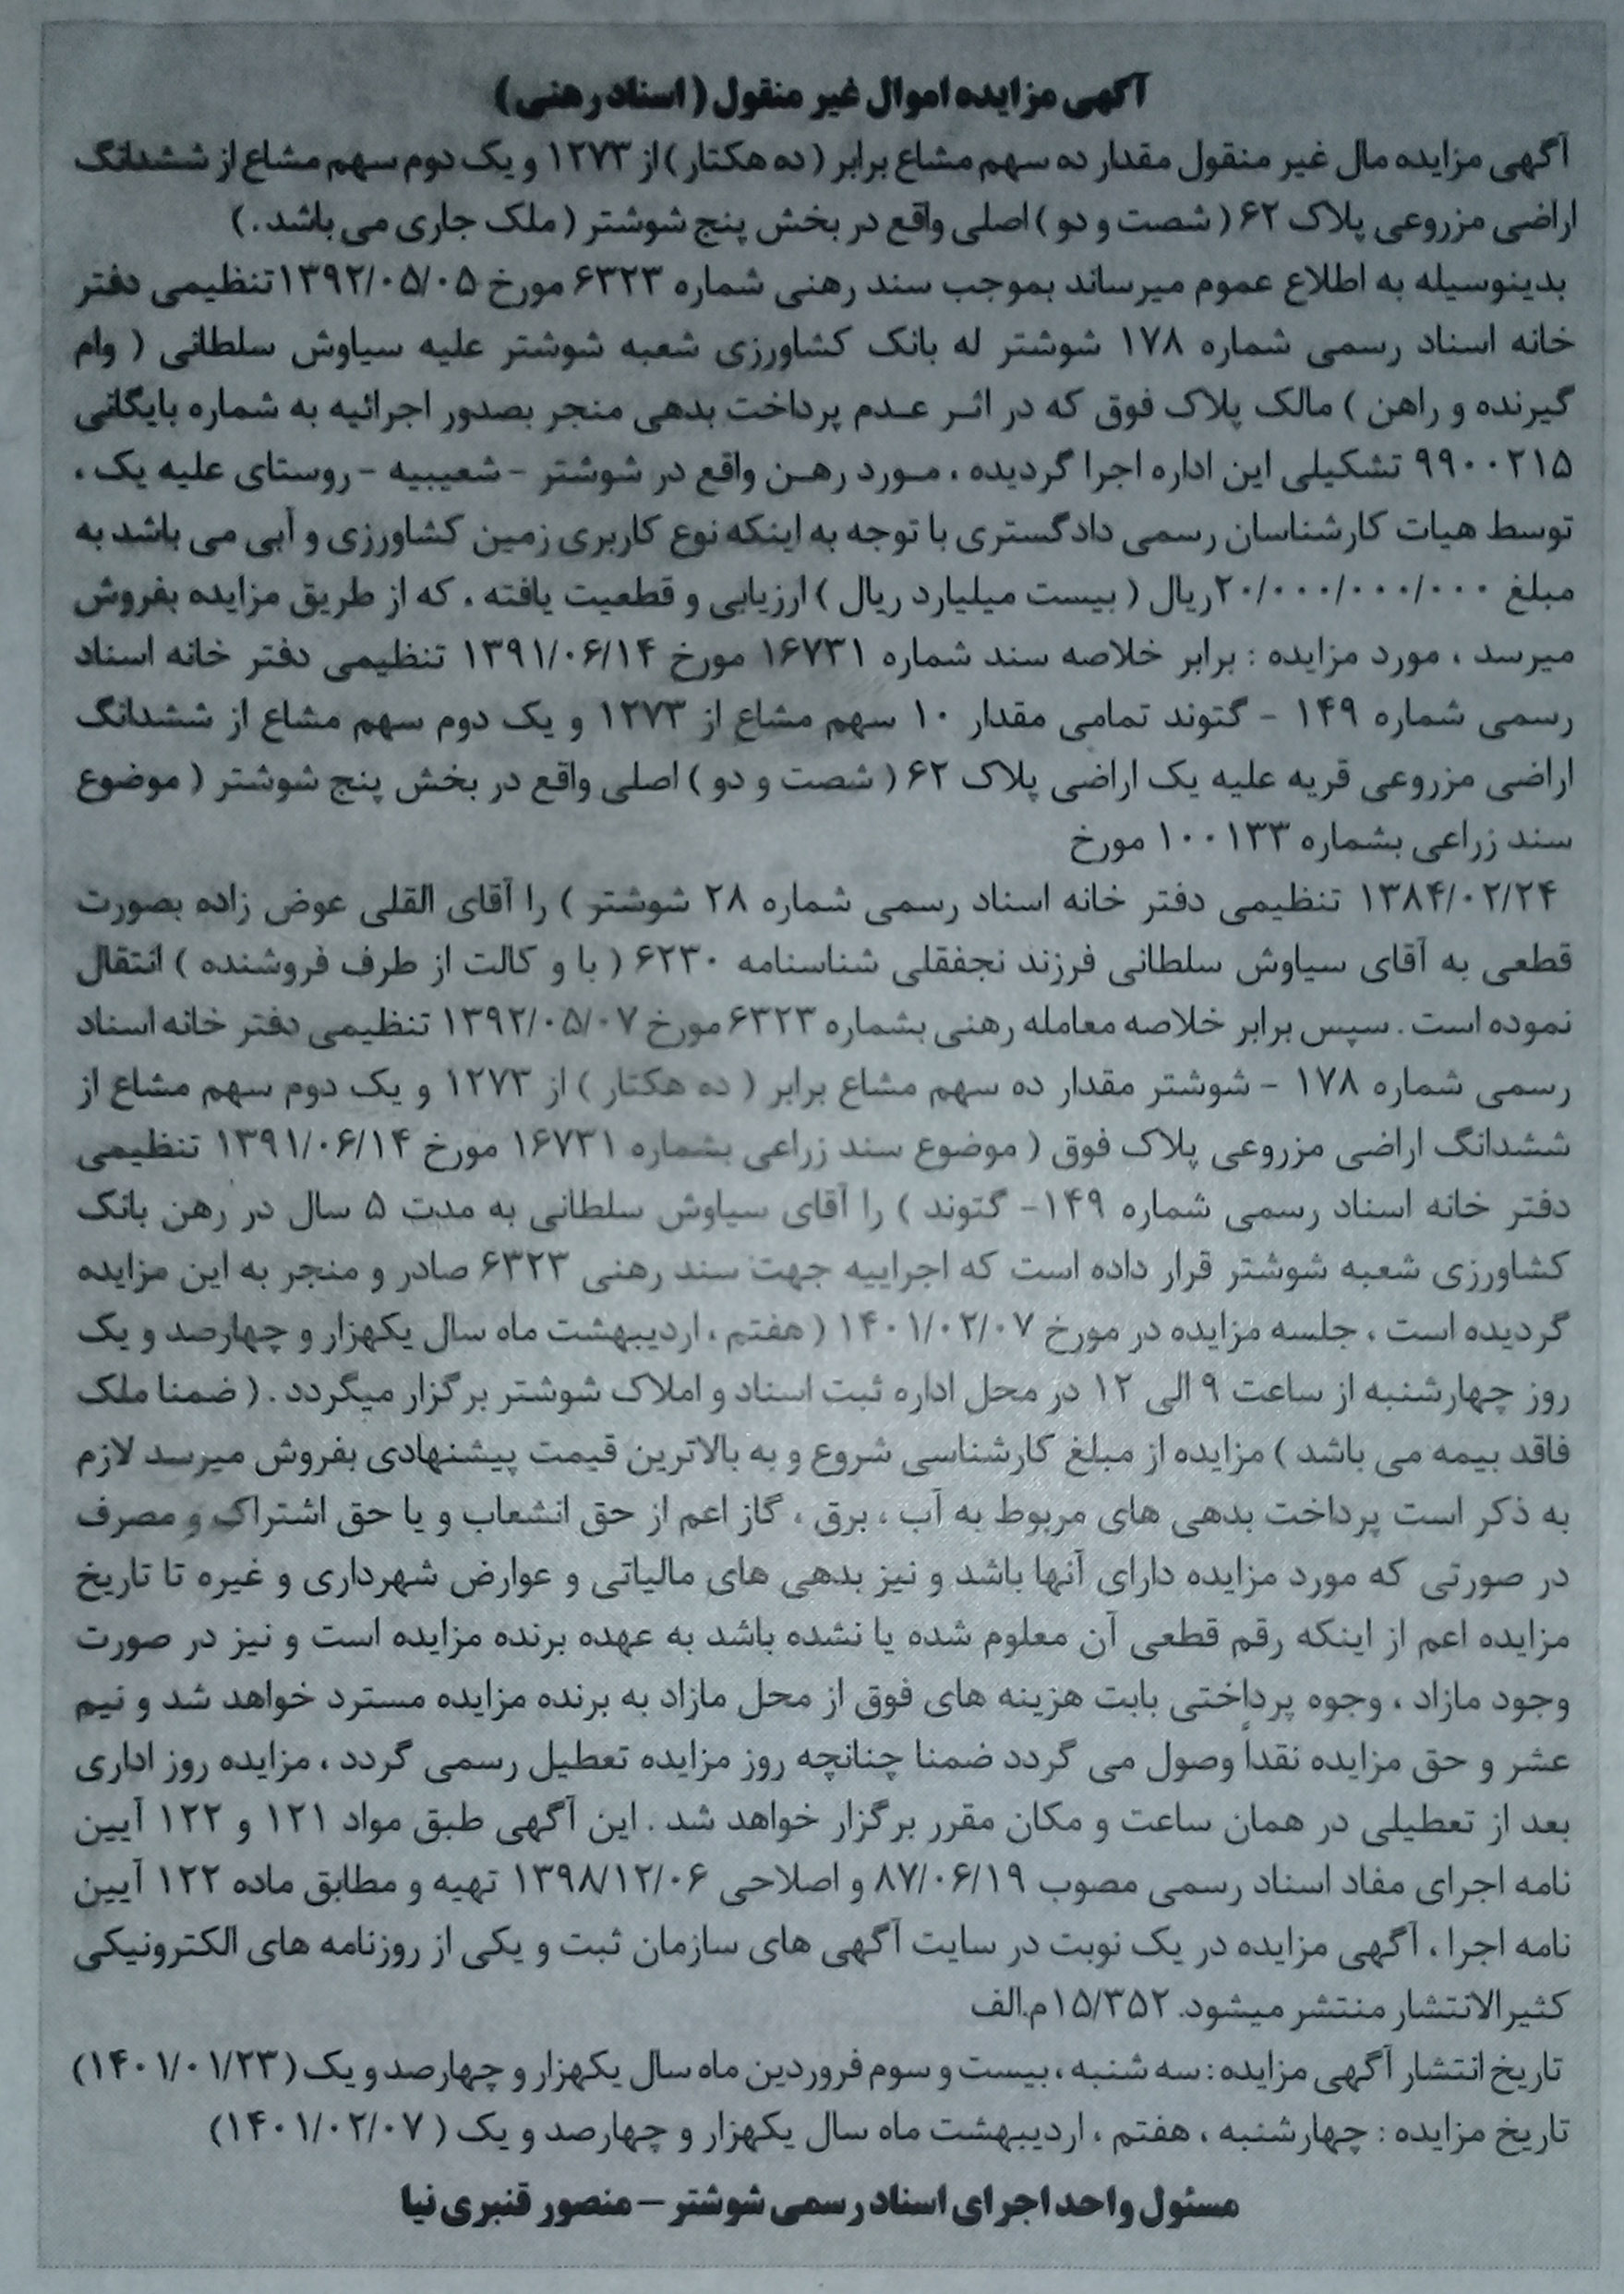 آگهی مزایده اموال غیر منقول ( اسناد رهنی )
آگهی مزایده مال غیر منقول مقدار ده سهم مشاع برابر ( ده هکتار ) از ۱۲۷۳ و یک دوم سهم مشاع از ششدانگ
اراضی مزروعی پلاک ۶۲ ( شصت و دو ) اصلی واقع در بخش پنج شوشتر ( ملک جاری می باشد . )
بدینوسیله به اطلاع عموم میرساند بموجب سند رهنی شماره ۶۳۲۳ مورخ ۱۳۹۲/۰۵/۰۵ تنظیمی دفتر
خانه اسناد رسمی شماره ۱۷۸ شوشتر له بانک کشاورزی شعبه شوشتر علیه سیاوش سلطانی ( وام
گیرنده و راهن ) مالک پلاک فوق که در اثر عدم پرداخت بدهی منجر بصدور اجرائیه به شماره بایگانی
۹۹۰۰۲۱۵ تشکیلی این اداره اجرا گردیده ، مورد رهن واقع در شوشتر - شعیبیه - روستای علیه یک ،
توسط هیات کارشناسان رسمی دادگستری با توجه به اینکه نوع کاربری زمین کشاورزی و آبی می باشد به
مبلغ ۲۰/۰۰۰/۰۰۰/۰۰۰ ریال ( بیست میلیارد ریال ) ارزیابی و قطعیت یافته ، که از طریق مزایده بفروش
میرسد ، مورد مزایده : برابر خلاصه سند شماره ۱۶۷۳۱ مورخ ۱۳۹۱/۰۶/۱۴ تنظیمی دفتر خانه اسناد
رسمی شماره ۱۴۹ - گتوند تمامی مقدار ۱۰ سهم مشاع از ۱۲۷۳ و یک دوم سهم مشاع از ششدانگ
اراضی مزروعی قریه علیه یک اراضی پلاک ۶۲ ( شصت و دو ) اصلی واقع در بخش پنج شوشتر ( موضوع
سند زراعی بشماره ۱۰۰۱۳۳ مورخ
۱۳۸۴/۰۲/۲۴ تنظیمی دفتر خانه اسناد رسمی شماره ۲۸ شوشتر ) را آقای القلی عوض زاده بصورت
قطعی به آقای سیاوش سلطانی فرزند نجفقلی شناسنامه ۶۲۳۰ ( با و کالت از طرف فروشنده ) انتقال
نموده است . سپس برابر خلاصه معامله رهنی بشماره ۶۳۲۳ مورخ ۱۳۹۲/۰۵/۰۷ تنظیمی دفتر خانه اسناد
رسمی شماره ۱۷۸ - شوشتر مقدار ده سهم مشاع برابر ( ده هکتار ) از ۱۲۷۳ و یک دوم سهم مشاع از
ششدانگ اراضی مزروعی پلاک فوق ( موضوع سند زراعی بشماره ۱۶۷۳۱ مورخ ۱۳۹۱/۰۶/۱۴ تنظیمی
دفتر خانه اسناد رسمی شماره ۱۴۹- گتوند ) را آقای سیاوش سلطانی به مدت ۵ سال در رهن بانک
کشاورزی شعبه شوشتر قرار داده است که اجراییه جهت سند رهنی ۶۳۲۳ صادر و منجر به این مزایده
گردیده است ، جلسه مزایده در مورخ ۱۴۰۱/۰۲/۰۷ ( هفتم ، اردیبهشت ماه سال یکهزار و چهارصد و یک
روز چهارشنبه از ساعت ۹ الی ۱۲ در محل اداره ثبت اسناد و املاک شوشتر برگزار میگردد . ( ضمنا ملک
فاقد بیمه می باشد ) مزایده از مبلغ کارشناسی شروع و به بالاترین قیمت پیشنهادی بفروش میرسد لازم
به ذکر است پرداخت بدهی های مربوط به آب ، برق ، گاز اعم از حق انشعاب و یا حق اشتراک و مصرف
در صورتی که مورد مزایده دارای آنها باشد و نیز بدهی های مالیاتی و عوارض شهرداری و غیره تا تاریخ
مزایده اعم از اینکه رقم قطعی آن معلوم شده یا نشده باشد به عهده برنده مزایده است و نیز در صورت
وجود مازاد ، وجوه پرداختی بابت هزینه های فوق از محل مازاد به برنده مزایده مسترد خواهد شد و نیم
عشر و حق مزایده نقداً وصول می گردد ضمنا چنانچه روز مزایده تعطیل رسمی گردد ، مزایده روز اداری
بعد از تعطیلی در همان ساعت و مکان مقرر برگزار خواهد شد . این آگهی طبق مواد ۱۲۱ و ۱۲۲ آیین
نامه اجرای مفاد اسناد رسمی مصوب ۸۷/۰۶/۱۹ و اصلاحی ۱۳۹۸/۱۲/۰۶ تهیه و مطابق ماده ۱۲۲ آیین
نامه اجرا ، آگهی مزایده در یک نوبت در سایت آگهی های سازمان ثبت و یکی از روزنامه های الکترونیکی
کثیرالانتشار منتشر میشود. ۱۵/۳۵۲م.الف
تاریخ انتشار آگهی مزایده : سه شنبه ، بیست و سوم فروردین ماه سال یکهزار و چهارصد و یک (۱۴۰۱/۰۱/۲۳)
تاریخ مزایده : چهارشنبه ، هفتم ، اردیبهشت ماه سال یکهزار و چهارصد و یک ( ۱۴۰۱/۰۲/۰۷)
مسئول واحد اجرای اسناد رسمی شوشتر – منصور قنبری نیا